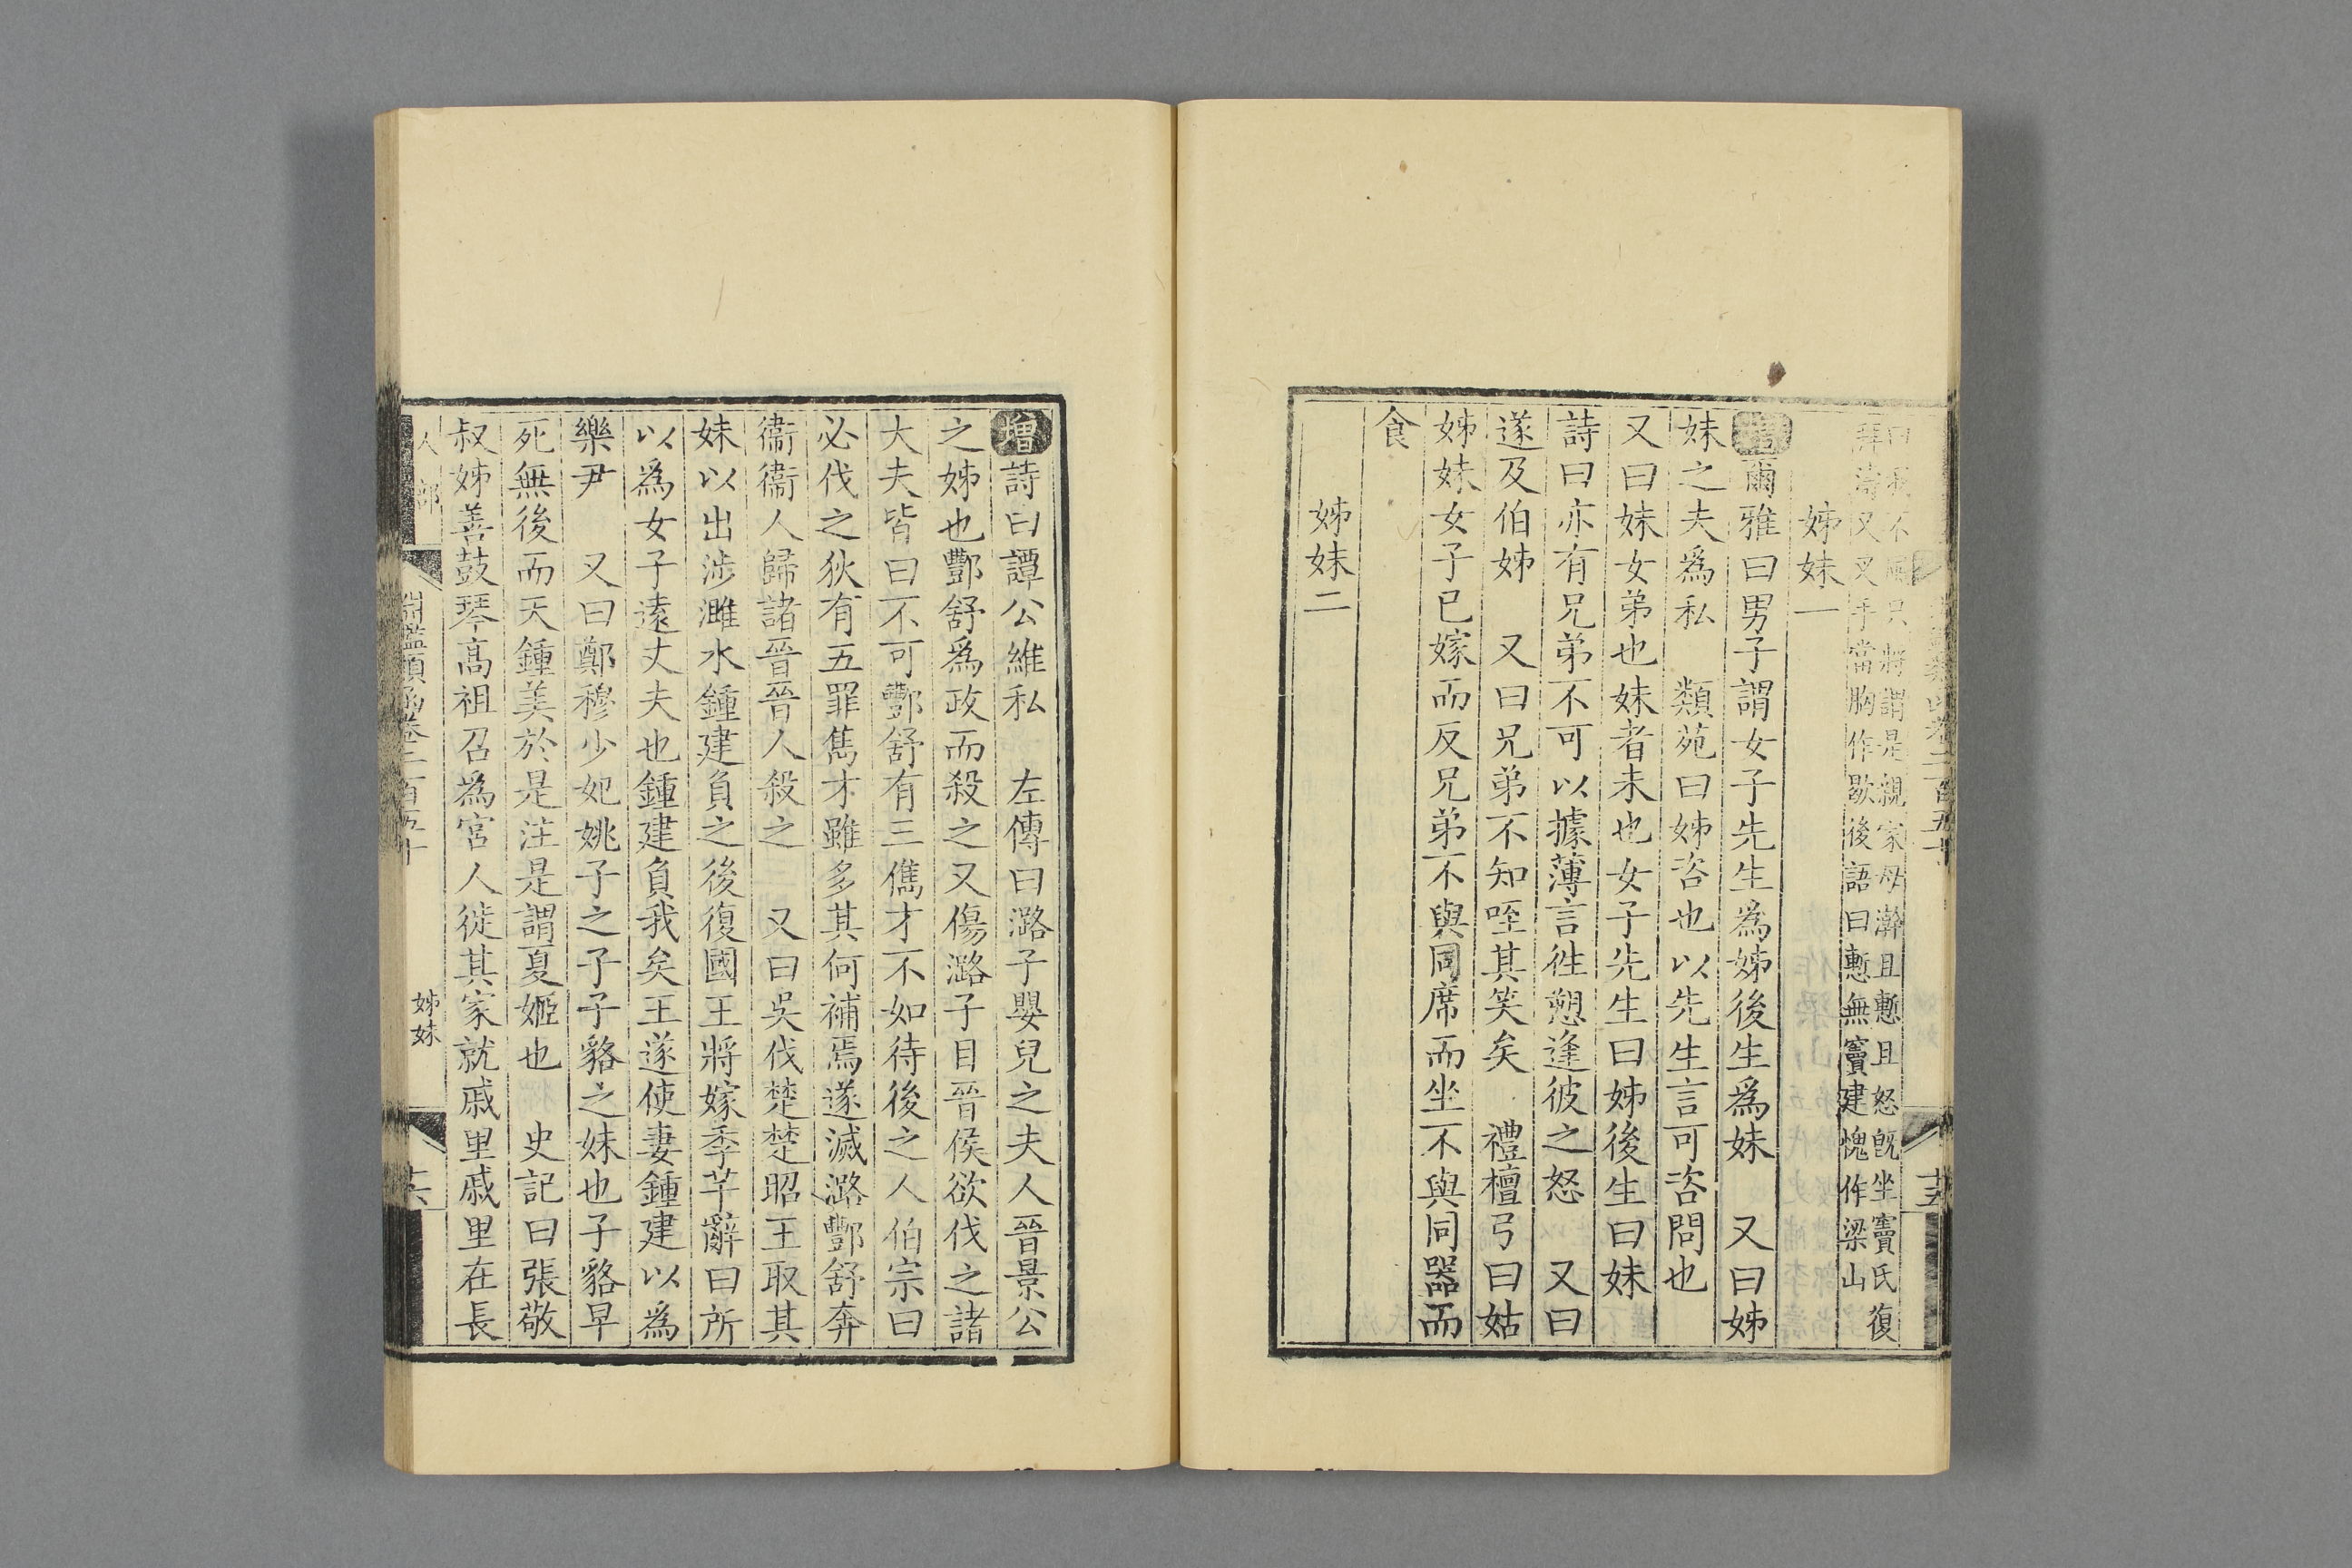 曰我不㕠只將謂是親家母瀚且慙且怒旣坐竇氏復
拜濤又叉手當胸作歇後語曰慙無竇建愧作梁山
姊妹一
增爾雅曰男子謂女子先生爲姊後生爲妹　又曰姊
妹之夫爲私　類苑曰姊咨也以先生言可咨問也
又曰妹女弟也妹者未也女子先生曰姊後生曰妹
詩曰亦有兄弟不可以據薄言徃愬逢彼之怒　又曰
遂及伯姊　又曰兄弟不知咥其笑矣　禮檀弓曰姑
姊妹女子已嫁而反兄弟不與同席而坐不與同器而
食
姊妹二
增詩曰譚公維私　左傳曰潞子嬰兒之夫人晉景公
之姊也酆舒爲政而殺之又傷潞子目晉侯欲伐之諸
大夫皆曰不可酆舒有三儁才不如待後之人伯宗曰
必伐之狄有五罪雋才雖多其何補焉遂滅潞酆舒奔
衞衞人歸諸晉晉人殺之　又曰吳伐楚楚昭王取其
妹以出涉濉水鍾建負之後復國王將嫁季芊辭曰所
以爲女子遠丈夫也鍾建負我矣王遂使妻鍾建以爲
樂尹　又曰鄭穆少妃姚子之子子貉之妹也子貉早
死無後而天鍾美於是注是謂夏姬也　史記曰張敬
叔姊善鼓琴高祖召爲宮人徙其家就戚里戚里在長
人部　淵鑑類函卷二百五十　姊妹　十六